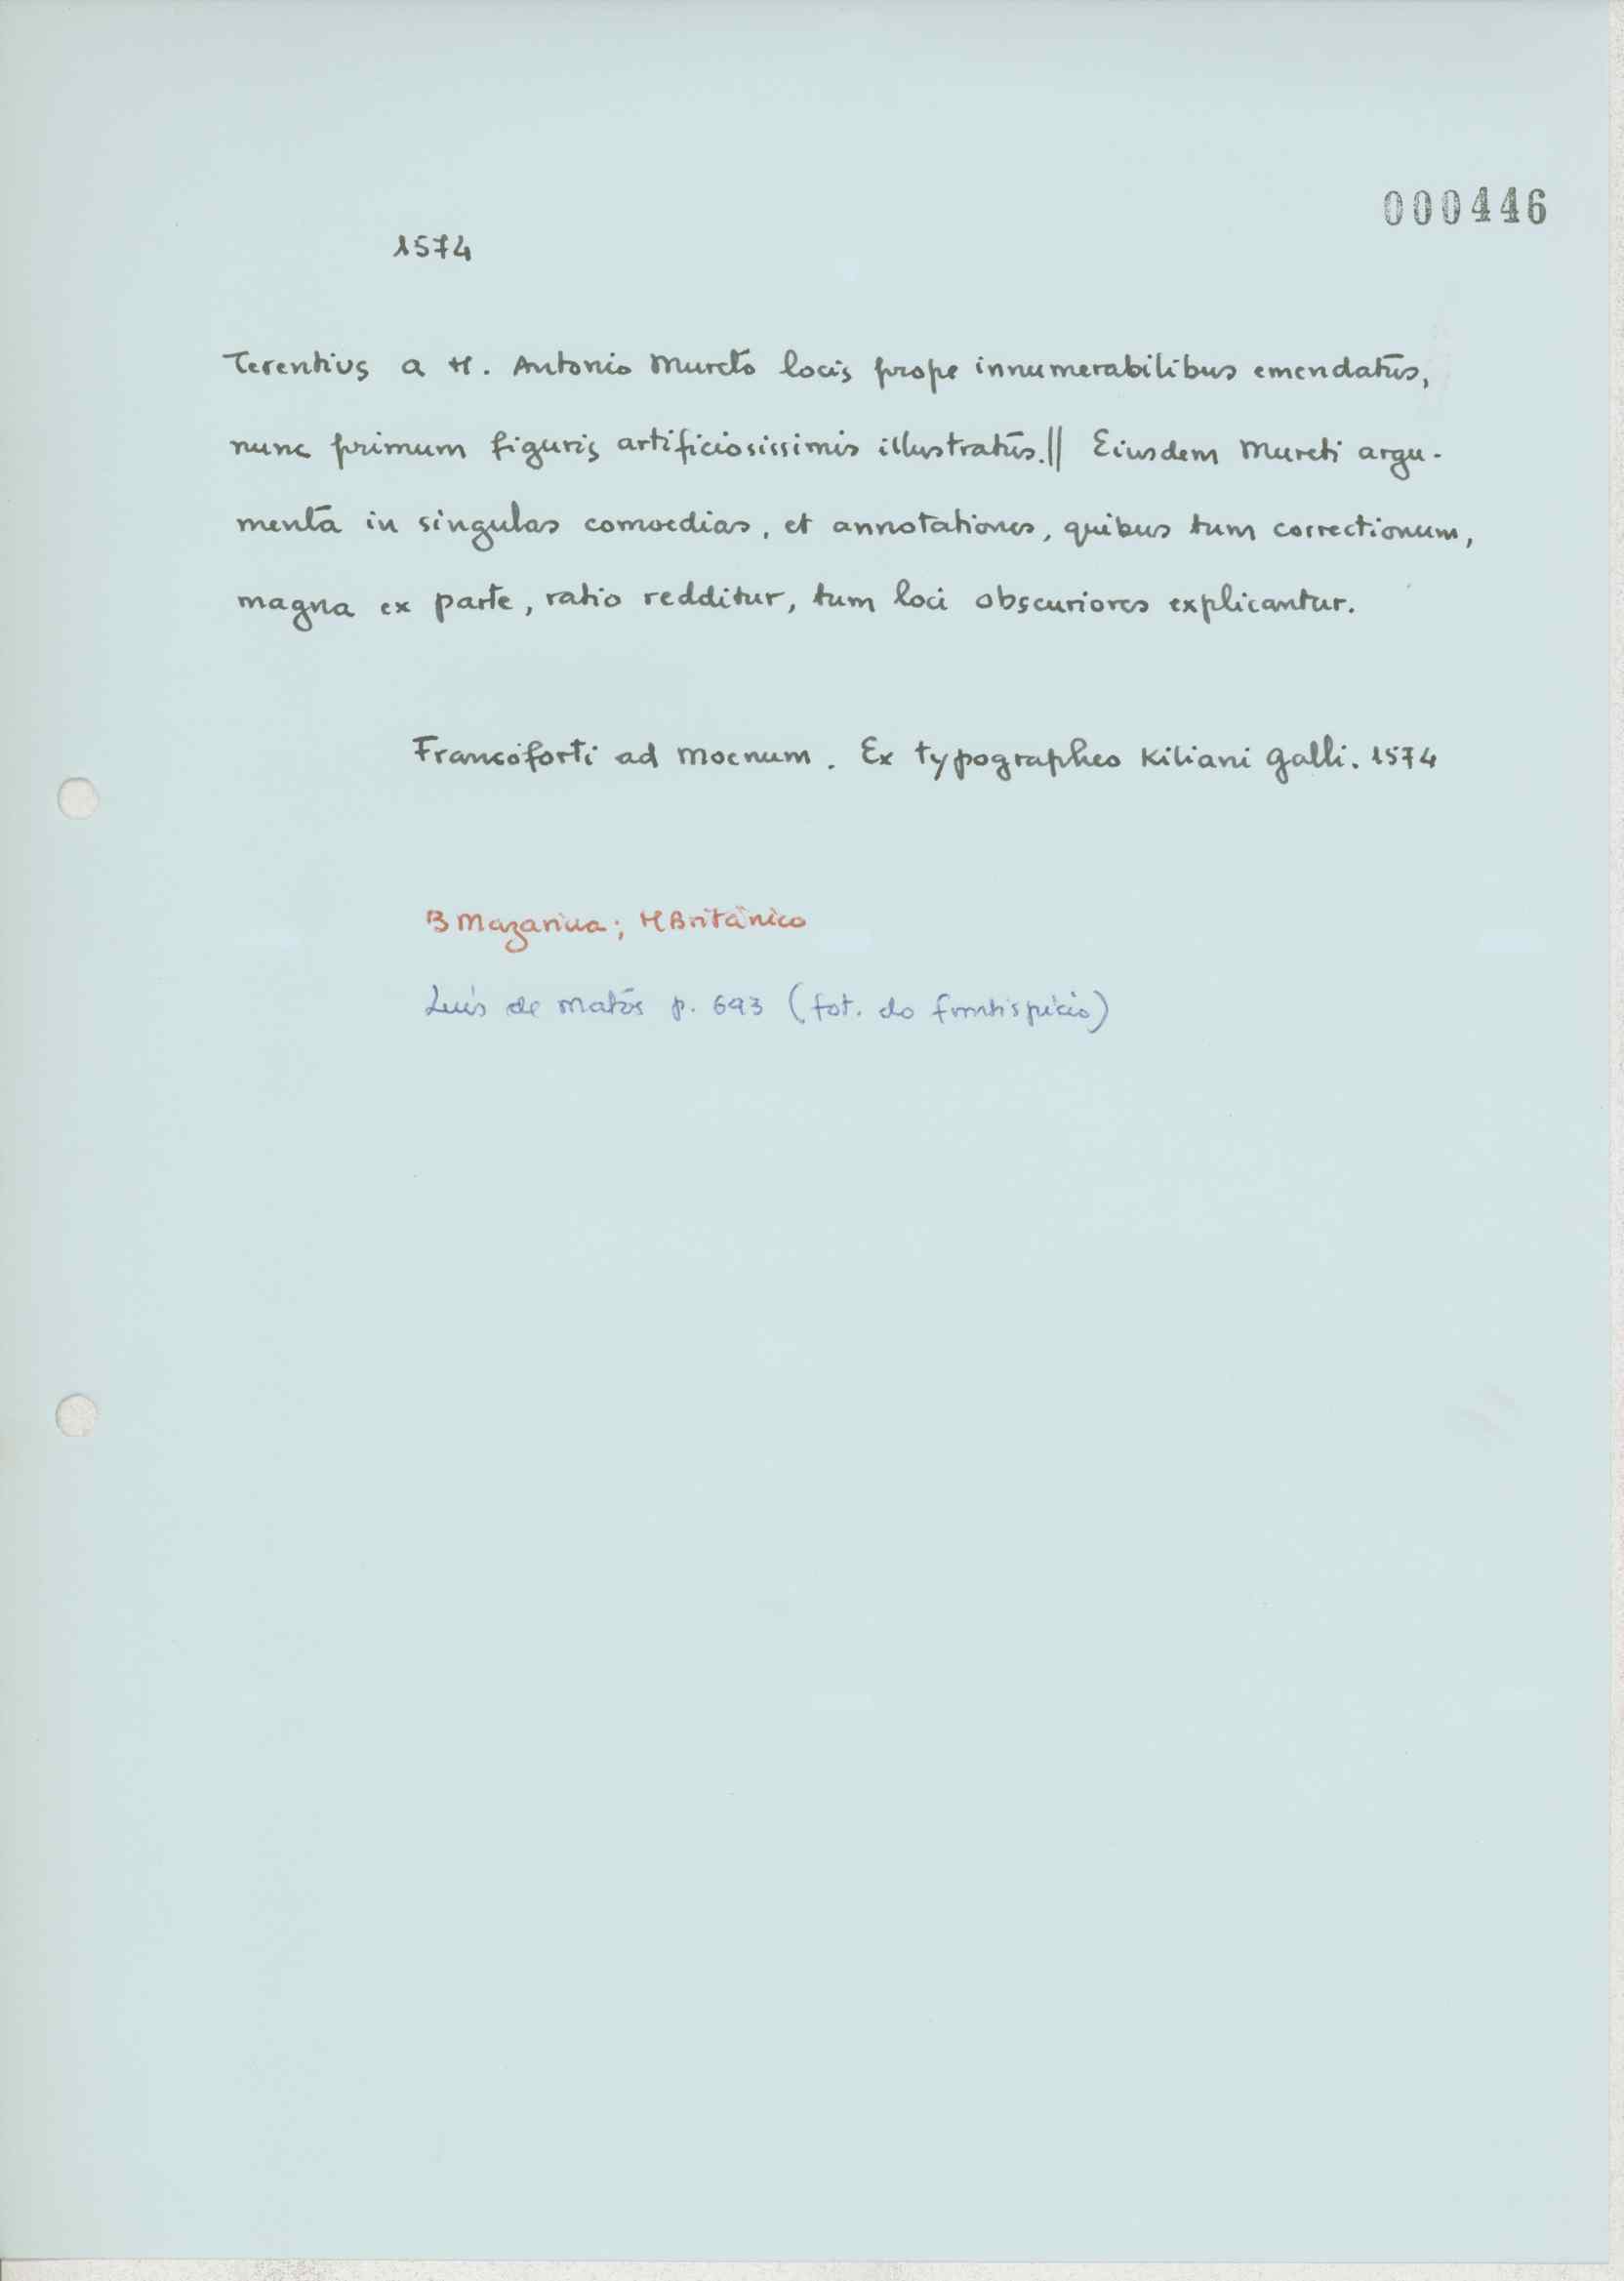 000446
1574
Terentius a M. Antonio Mureto locis prope innumerabilibus emendatus,
nunc primum figuris artificiosissimis illustratus.|| Eiusdem Mureti argu-
menta in singulas comoedias, et annotationes, quibus tum correctionum,
magna ex parte, ratio redditur, tum loci obscuriores explicantur.
Francoforti ad Moenum. Ex typographeo Kiliani Galli. 1574
B Mazarina; M Britânico
Luís de Matos p. 693 (fot. do frontispício)